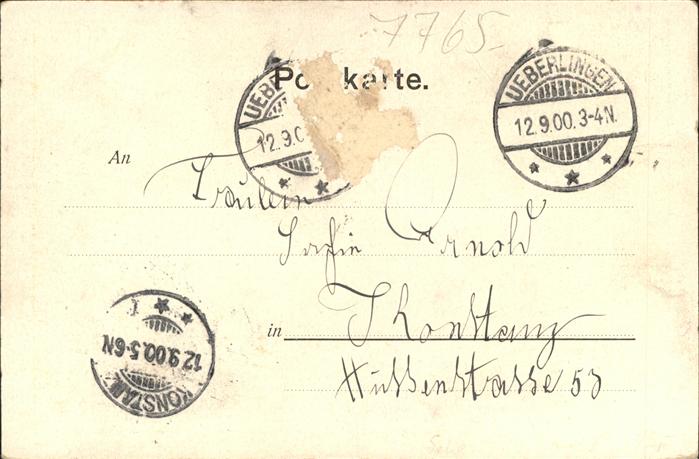 7765
Postkarte.
UEBERLINGEN
12.9.00.3-4N.
UEBE
12.9.0
An
Fräulein
Sofie Arnold
in Konstanz
Hussenstrasse 53
KONSTANZ
12.9.00.5-6N
1